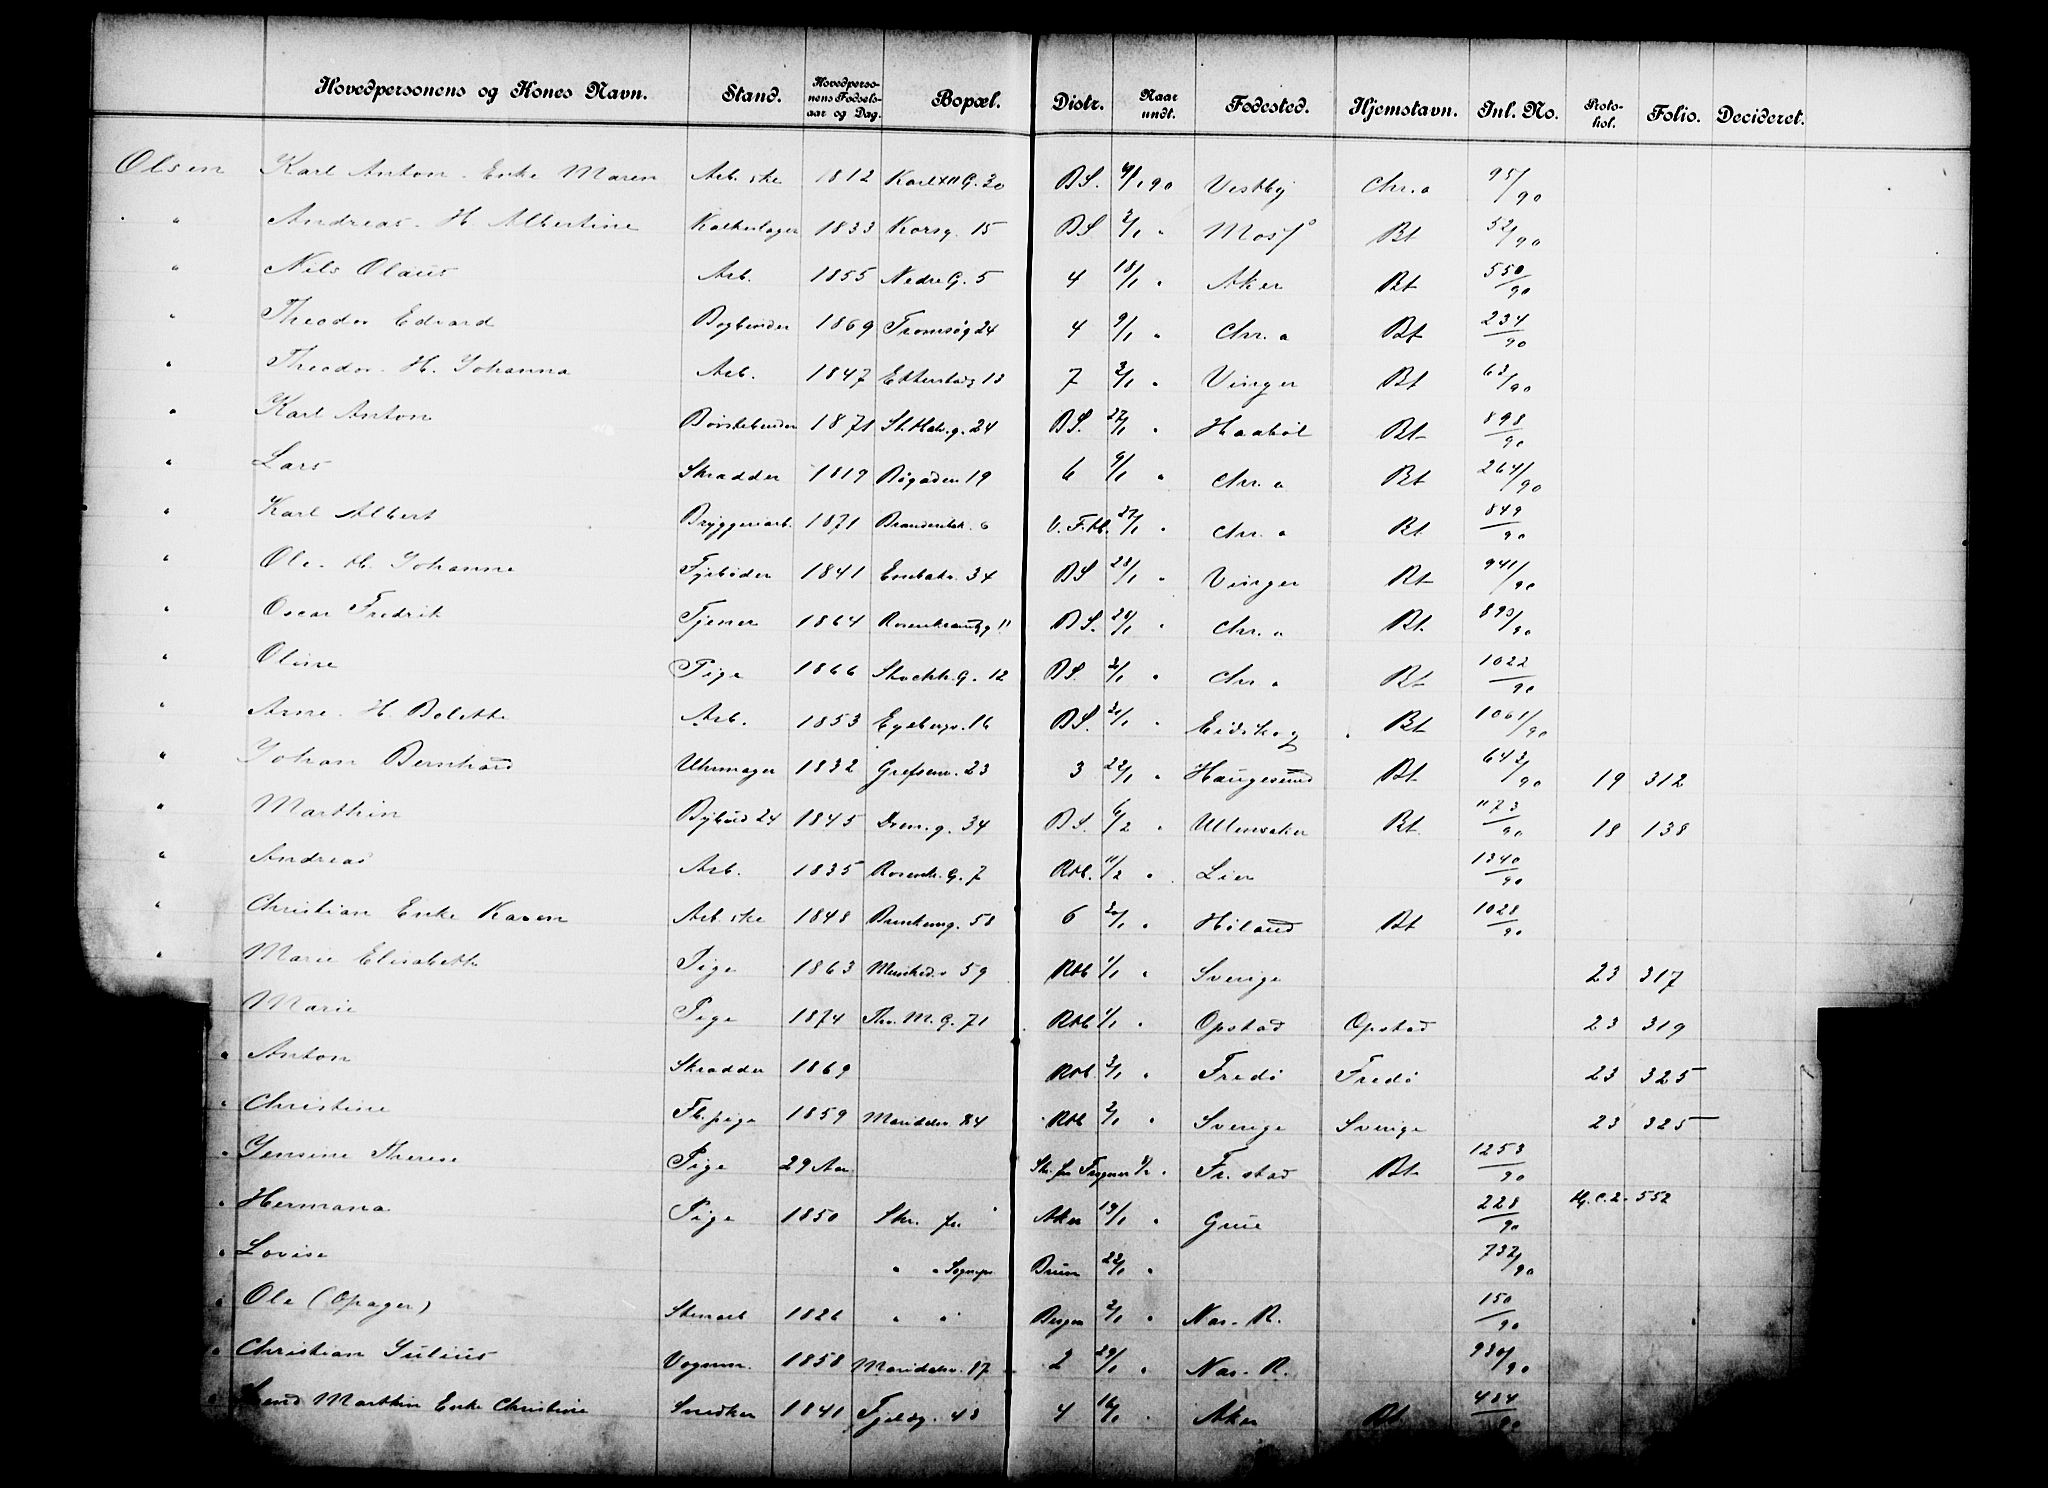 Hovedpersonens og Kones Navn. Stand. Hovedperso-nens Fødsels-aar og Dag. Bopæl. Distr. Naar undt. Fødested. Hjemstavn. Inl. No. Proto-kol. Folio. Decideret.
Olsen Karl Anton. Enke Maren Arb. ske 1812 Karl XII G. 30 B.S. 4/1 90 Vestby Chr.a 95/90
" Andreas. H. Albertine 1833 Korsg. 15 B S 2/1 " Moss Bt 52/90
" Nils Olaus Arb. 1855 Nedre G. 5 4 18/1 " Aker Bt 550/90
" Theodor Edvard Bogbinder 1869 Tromsøg 24 4 9/1 " Chr. a Bt 234/90
" Theodor. H. Johanna Arb. 1847 Etterstadg 13 7 2/1 " Vinger Bt 63/90
" Karl Anton Børstebinder 1871 St. Halv. g. 24 B S. 27/1 " Haabøl Bt 898/90
" Lars Skradder 1819 Bøgaden 19 6 9/1 " Chr. a Bt 264/90
" Karl Albert Bryggeriarb. 1871 6 V. F. H. 27/1 " Chr. a Bt 849/90
" Ole. H. Johanne Fyrbøder 1841 Enebakv. 34 B S 28/1 " Vinger Bt 941/90
" Oscar Fredrik Tjener 1864 Rosenkrantzg 11 B S. 28/1 " Chr. a Bt 893/90
" Oline Pige 1866 Stockh. G. 12 B S. 31/1 " Chr. a Bt 1022/90
" Arne. H. Bolette Arb. 1853 Egebergv. 16 B S. 31/1 " Eidskog Bt 1061/90
" Johan Bernhard Uhrmager 1832 Grefsenv. 23 3 22/1 " Haugesund Bt 643/90 19 312
" Marthin Bybud 24 1845 Dram. g. 34 B S. 6/2 " Ullensaker Bt 1173/90 18 138
" Andreas Arb. 1835 Rosenkr. G. 7 Rtb. 11/2 " Lier 1340/90
" Christian Enke Karen Arb. ske 1848 Brinkeng. 58 6 30/1 " Høland Bt 1028/90
" Marie Elisabeth Pige 1863 59 Rtb 1/1 " Sverige 23 317
" Marie Pige 1874 Thv. M. G. 71 Rtb 1/1 " Opstad Opstad 23 319
" Anton Skradder 1869 Rtb. 3/1 " Fredö Fredö 23 325
" Christine Fb. pige 1859 Maridalsv. 84 Rtb 2/1 " Sverige Sverige 23 325
" Jensine Therese Pige 29 Aar Skr. fra Trogner 1/2 " Fr. stad Bt 1253/90
" Hermana Pige 1850 Skr. fra Aker 13/1 " Grue 228/90 552
" Lovise " " Sognepr Bruun 22/1 " 732/90
" Ole (Opager) Stenarb 1826 " " Bergen 2/1 " Nas. R. 150/90
" Christian Julius Vognm. 1858 Maridalsv. 87 2 29/1 " Nas. R. 930/90
" Lund Marthin Enke Christine Snedker 1841 Fjeldg. 43 4 16/1 " Aker Bt. 484/90